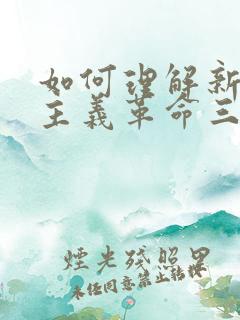 如何理解新
主義革命三
煙光殘照里
未經同意禁止轉板